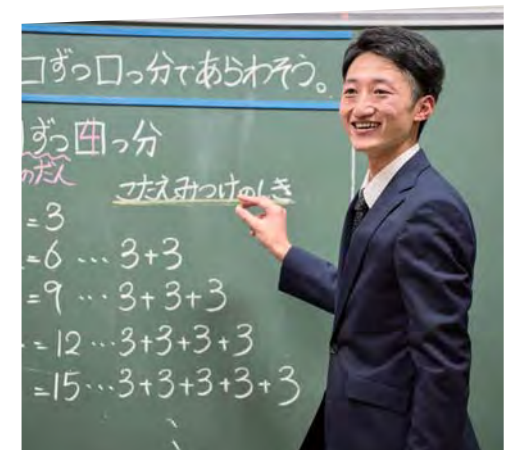 □ずつ□っ分であらわそう。
ずつ4っ分
のだん
こたえみつけのしき
=3
=6…3+3
=9…3+3+3
=12…3+3+3+3
=15…3+3+3+3+3